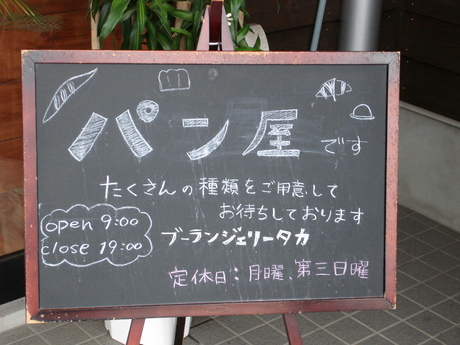 パン屋です
たくさんの種類をご用意して
お待ちしております
open 9:00
close 19:00
ブーランジェリータカ
定休日:月曜、第三日曜